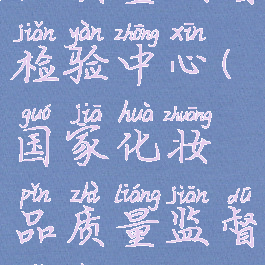 jiǎn yàn zhōng xīn
检验中心(
guó jiā huà zhuāng
国家化妆
pǐn zhì liáng jiān dū
品质量监督